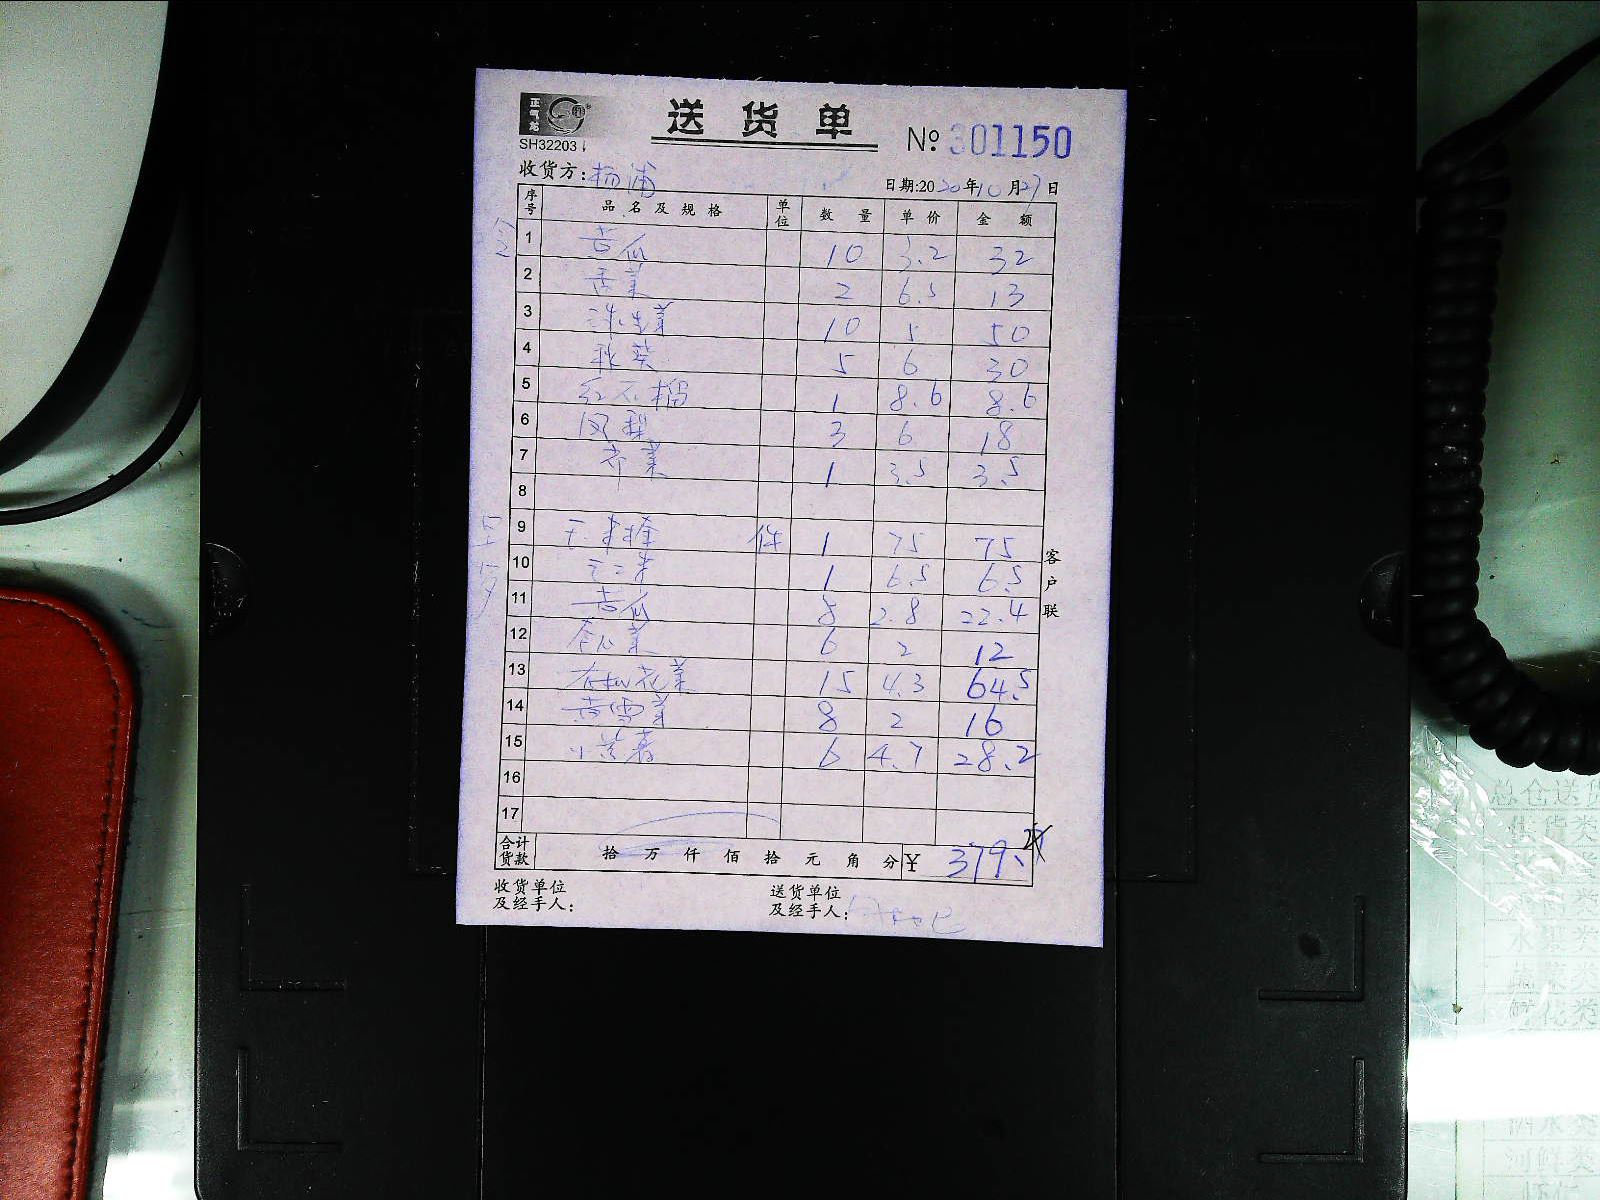 正气站
送货单
SH32203
№ 301150
收货方: 杨浦
日期:2020年10月27日
序号 品名及规格 单位 数量 单价 金额
1 苦瓜 10 3.2 32
2 苦菜 2 6.5 13
3 生菜 10 5 50
4 秋葵 5 6 30
5 红石榴 1 8.6 8.6
6 凤梨 3 6 18
7 荠菜 1 3.5 3.5
8
9 玉米 件 1 75 75
10 1 6.5 6.5
11 苦瓜 8 2.8 22.4
12 菜 6 2 12
13 花菜 15 4.3 64.5
14 黄雪菜 8 2 16
15 小黄薯 6 4.7 28.2
16
17
合计货款 拾 万 仟 佰 拾 元 角 分 ¥ 379.
收货单位及经手人:
送货单位及经手人:
客户联
总仓送货
水类
蔬菜类
酒水类
河鲜类